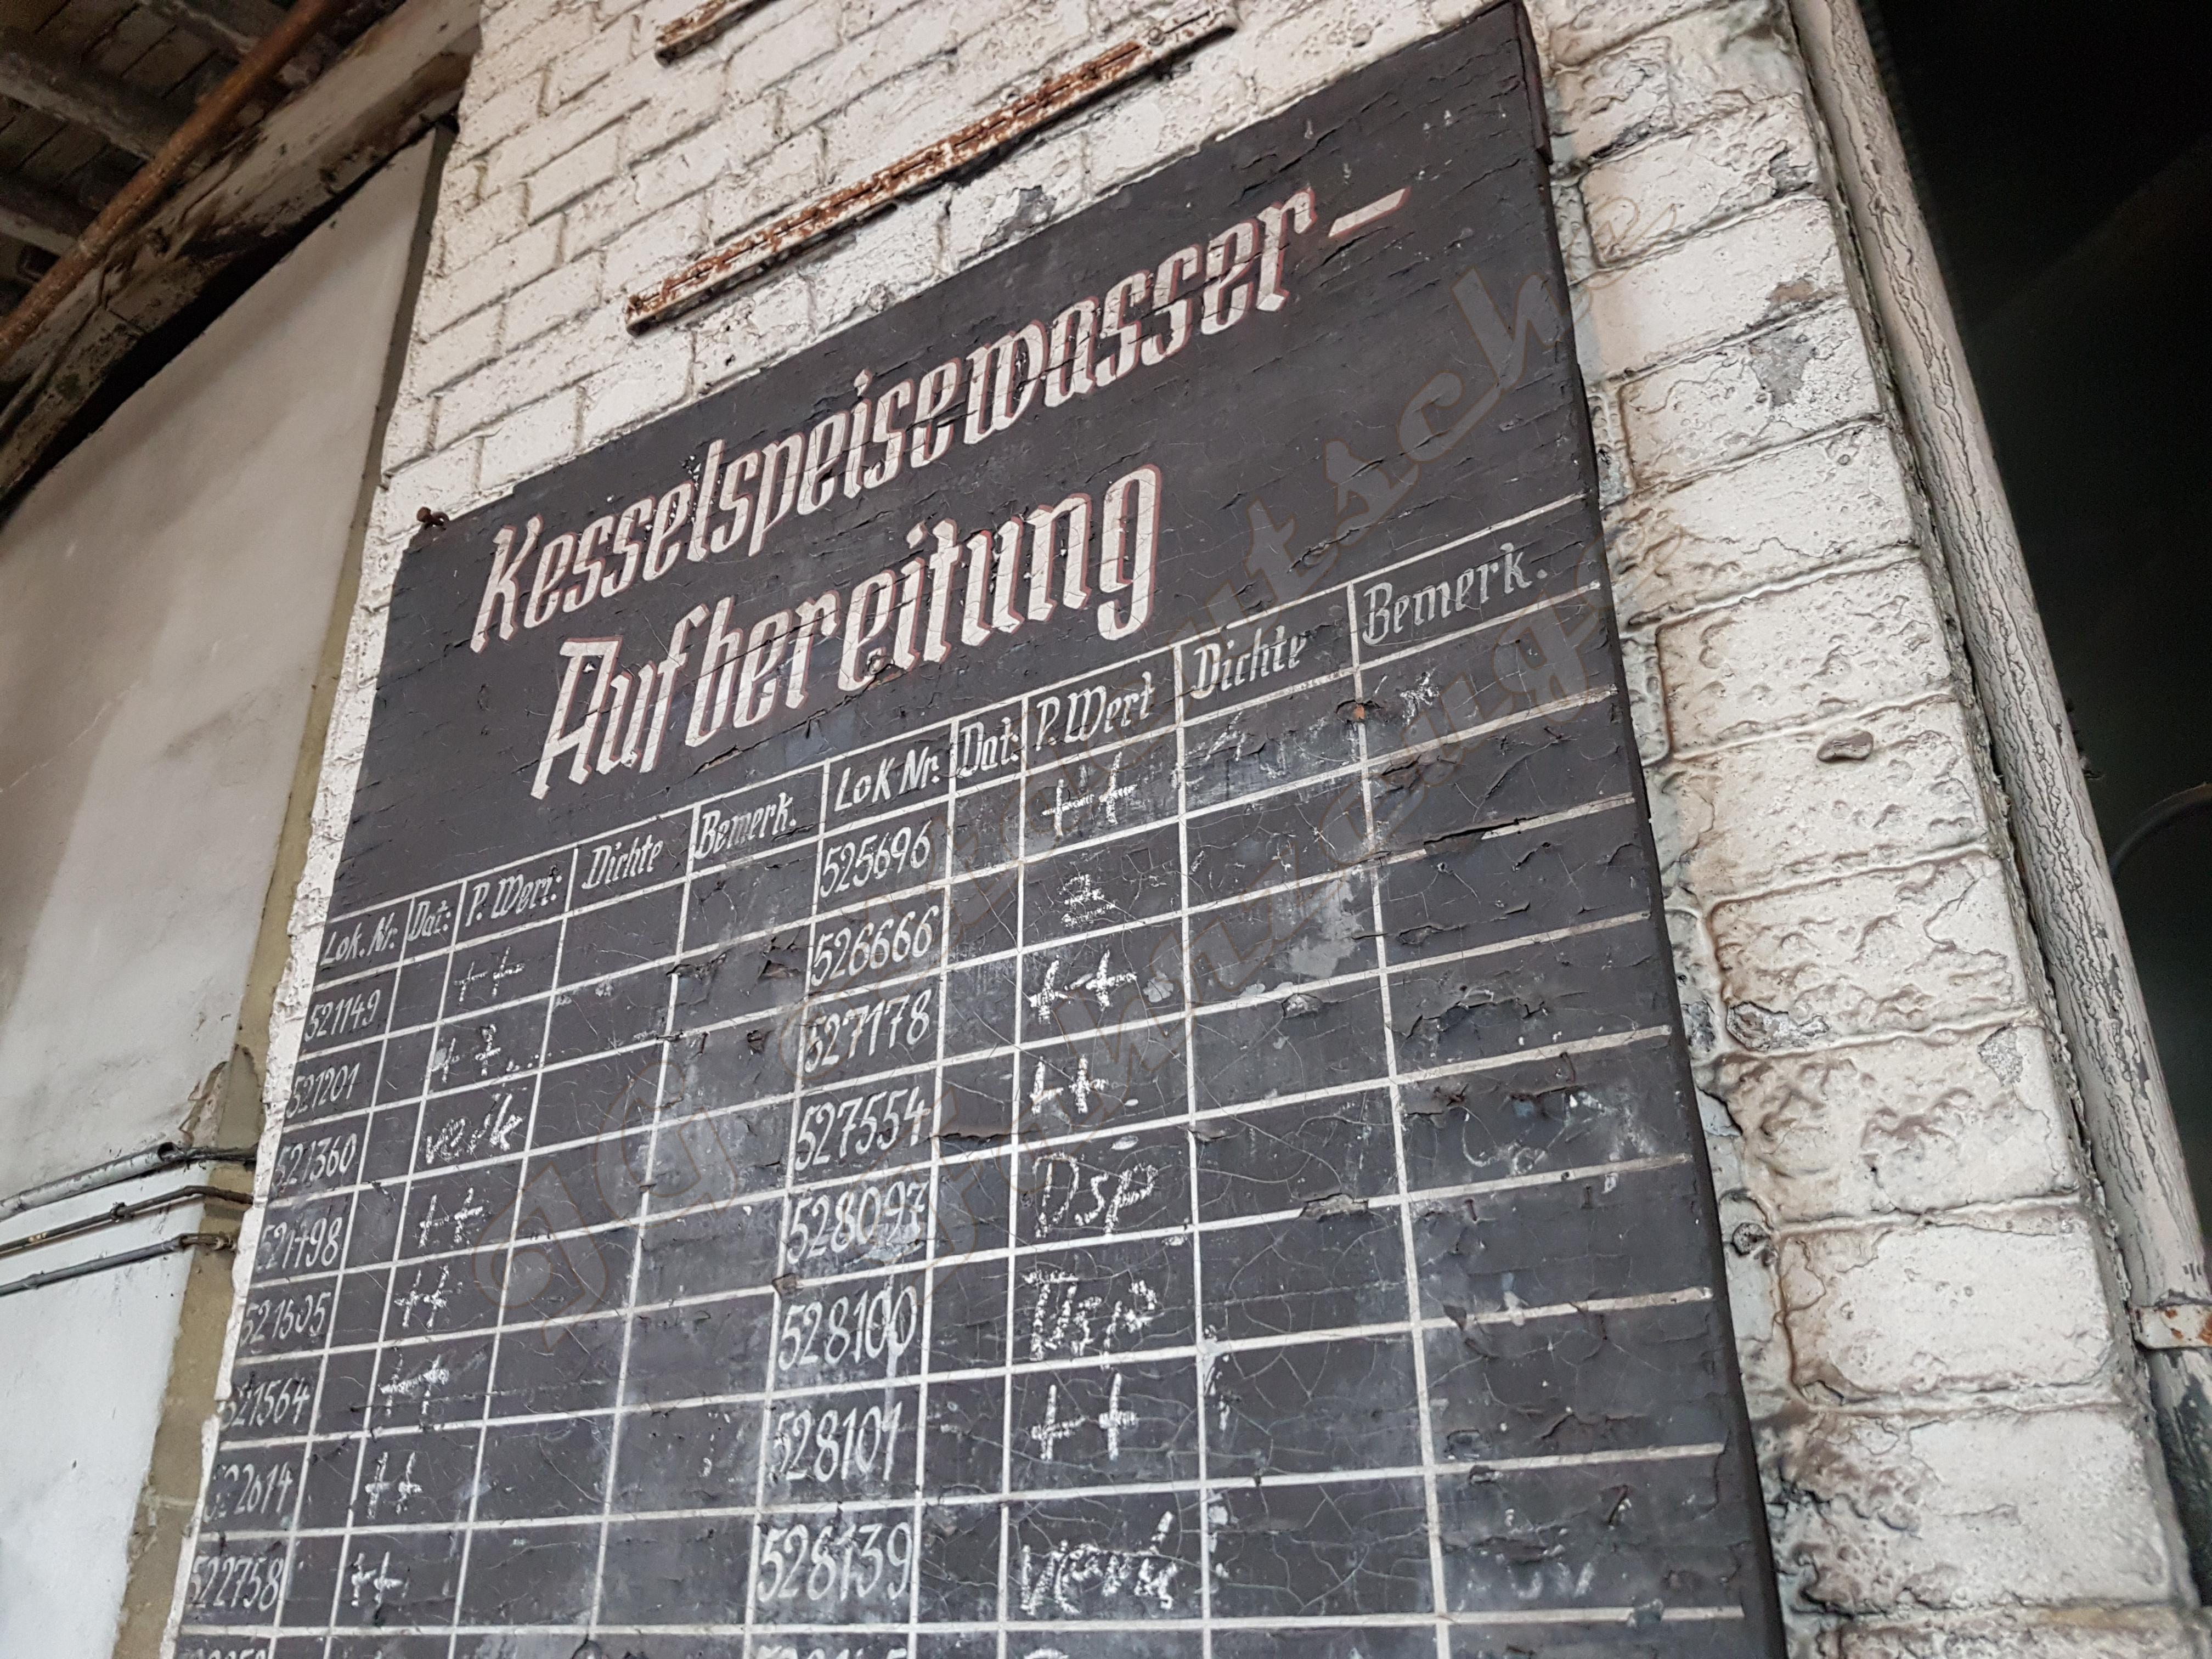 Kesselspeisewasser-
Aufbereitung
Lok. Nr. Dat: P. Wert: Dichte Bemerk. Lok Nr. Dat: P. Wert Dichte Bemerk.
521149 ++ 525696 ++
521201 526666
521360 527178 ++
521498 ++ 527554 ++
521505 ++ 528097 Dsp
521564 ++ 528100 Dsp
522614 ++ 528101 ++
522758 ++ 528139